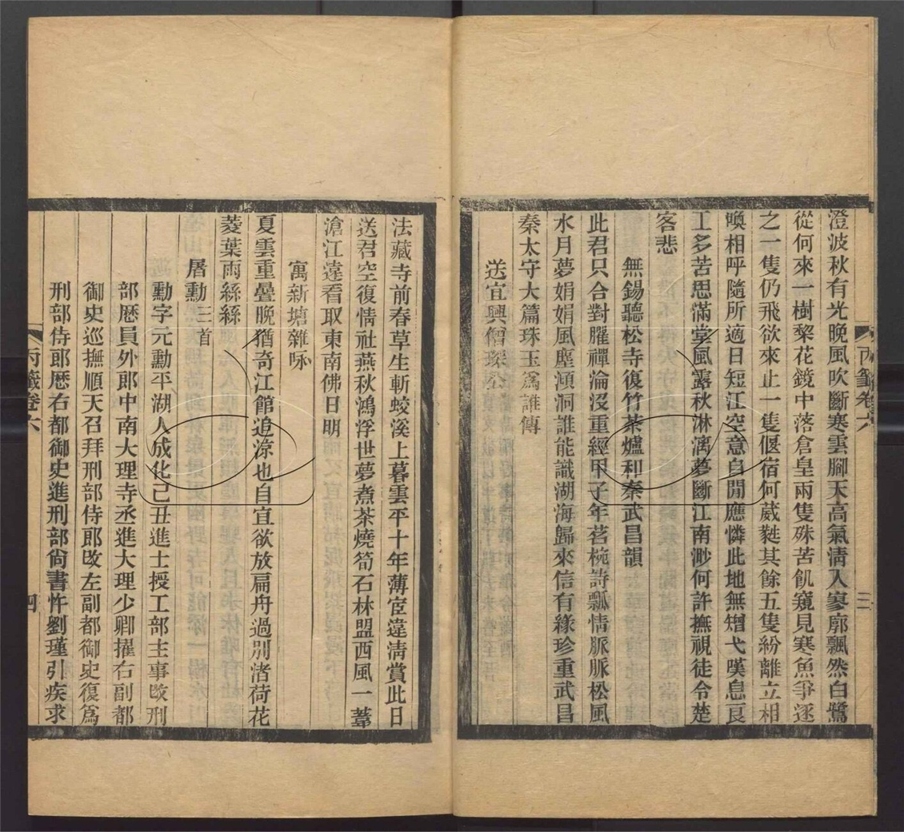 澄波秋有光晚風吹斷寒雲腳天高氣清入寥廓飄然白鷺
從何來一樹棃花鏡中落倉皇兩隻殊苦飢窺見寒魚爭逐
之一隻仍飛欲來止一隻偃宿何葳蕤其餘五隻紛離立相
喚相呼隨所適日短江空意自閒應憐此地無矰弋嘆息良
工多苦思滿堂風露秋淋漓夢斷江南渺何許撫視徒令楚
客悲
無錫聽松寺復竹茶爐和秦武昌韻
此君只合對臞禪淪沒重經甲子年茗椀詩瓢情脈脈松風
水月夢娟娟風塵澒洞誰能識湖海歸來信有緣珍重武昌
秦太守大篇珠玉為誰傳
送宜興僧
法藏寺前春草生斬蛟溪上暮雲平十年薄宦違清賞此日
送君空復情社燕秋鴻浮世夢煮茶燒筍石林盟西風一葦
滄江遠看取東南佛日明
寓新塘雜咏
夏雲重疊晚猶奇江館追涼也自宜欲放扁舟過別渚荷花
菱葉雨絲絲
屠勳三首
勳字元勳平湖人成化己丑進士授工部主事改刑
部歷員外郎中南大理寺丞進大理少卿擢右副都
御史巡撫順天召拜刑部侍郎改左副都御史復為
刑部侍郎歷右都御史進刑部尚書忤劉瑾引疾求